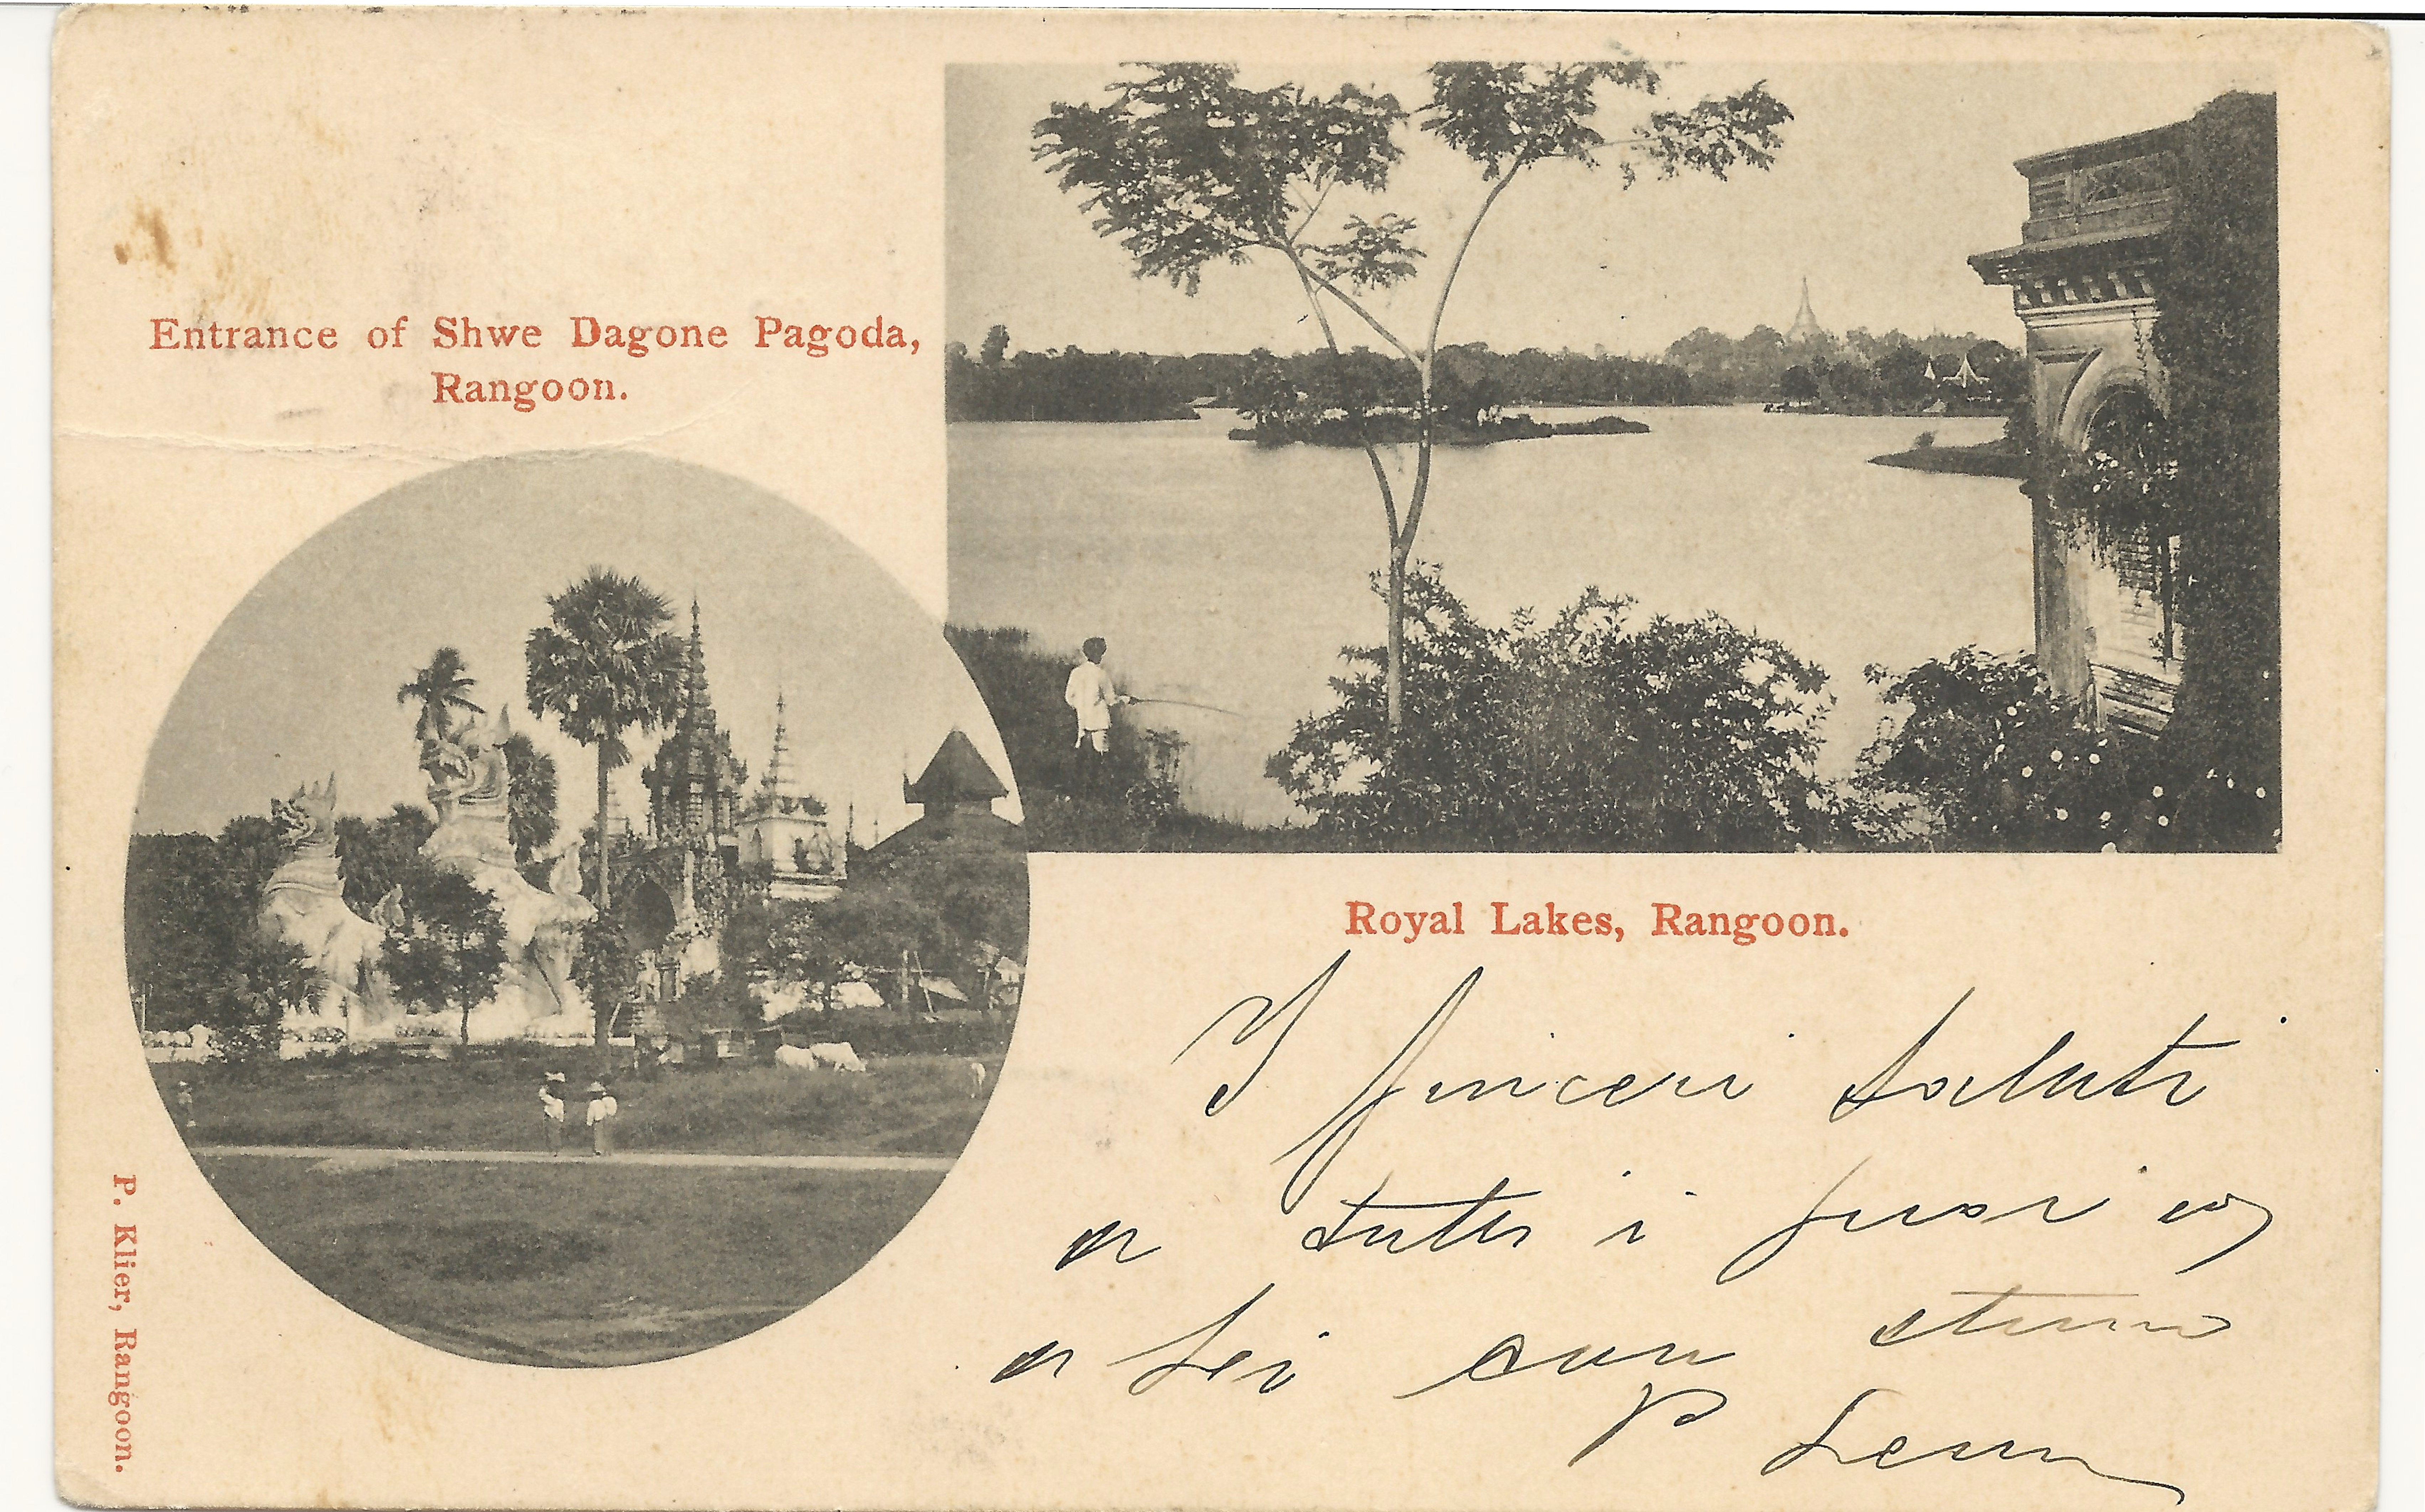 Entrance of Shwe Dagone Pagoda,
Rangoon.
Royal Lakes, Rangoon.
I sinceri saluti
a tutti i suoi e
a Lei con stima
P
P. Klier, Rangoon.